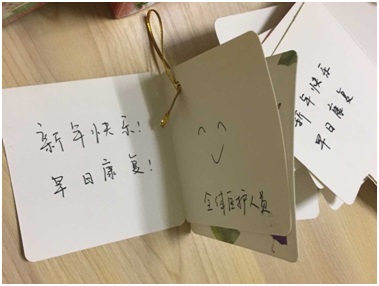 新年快乐!
早日康复!
全体医护人员
新年快乐
早日康复